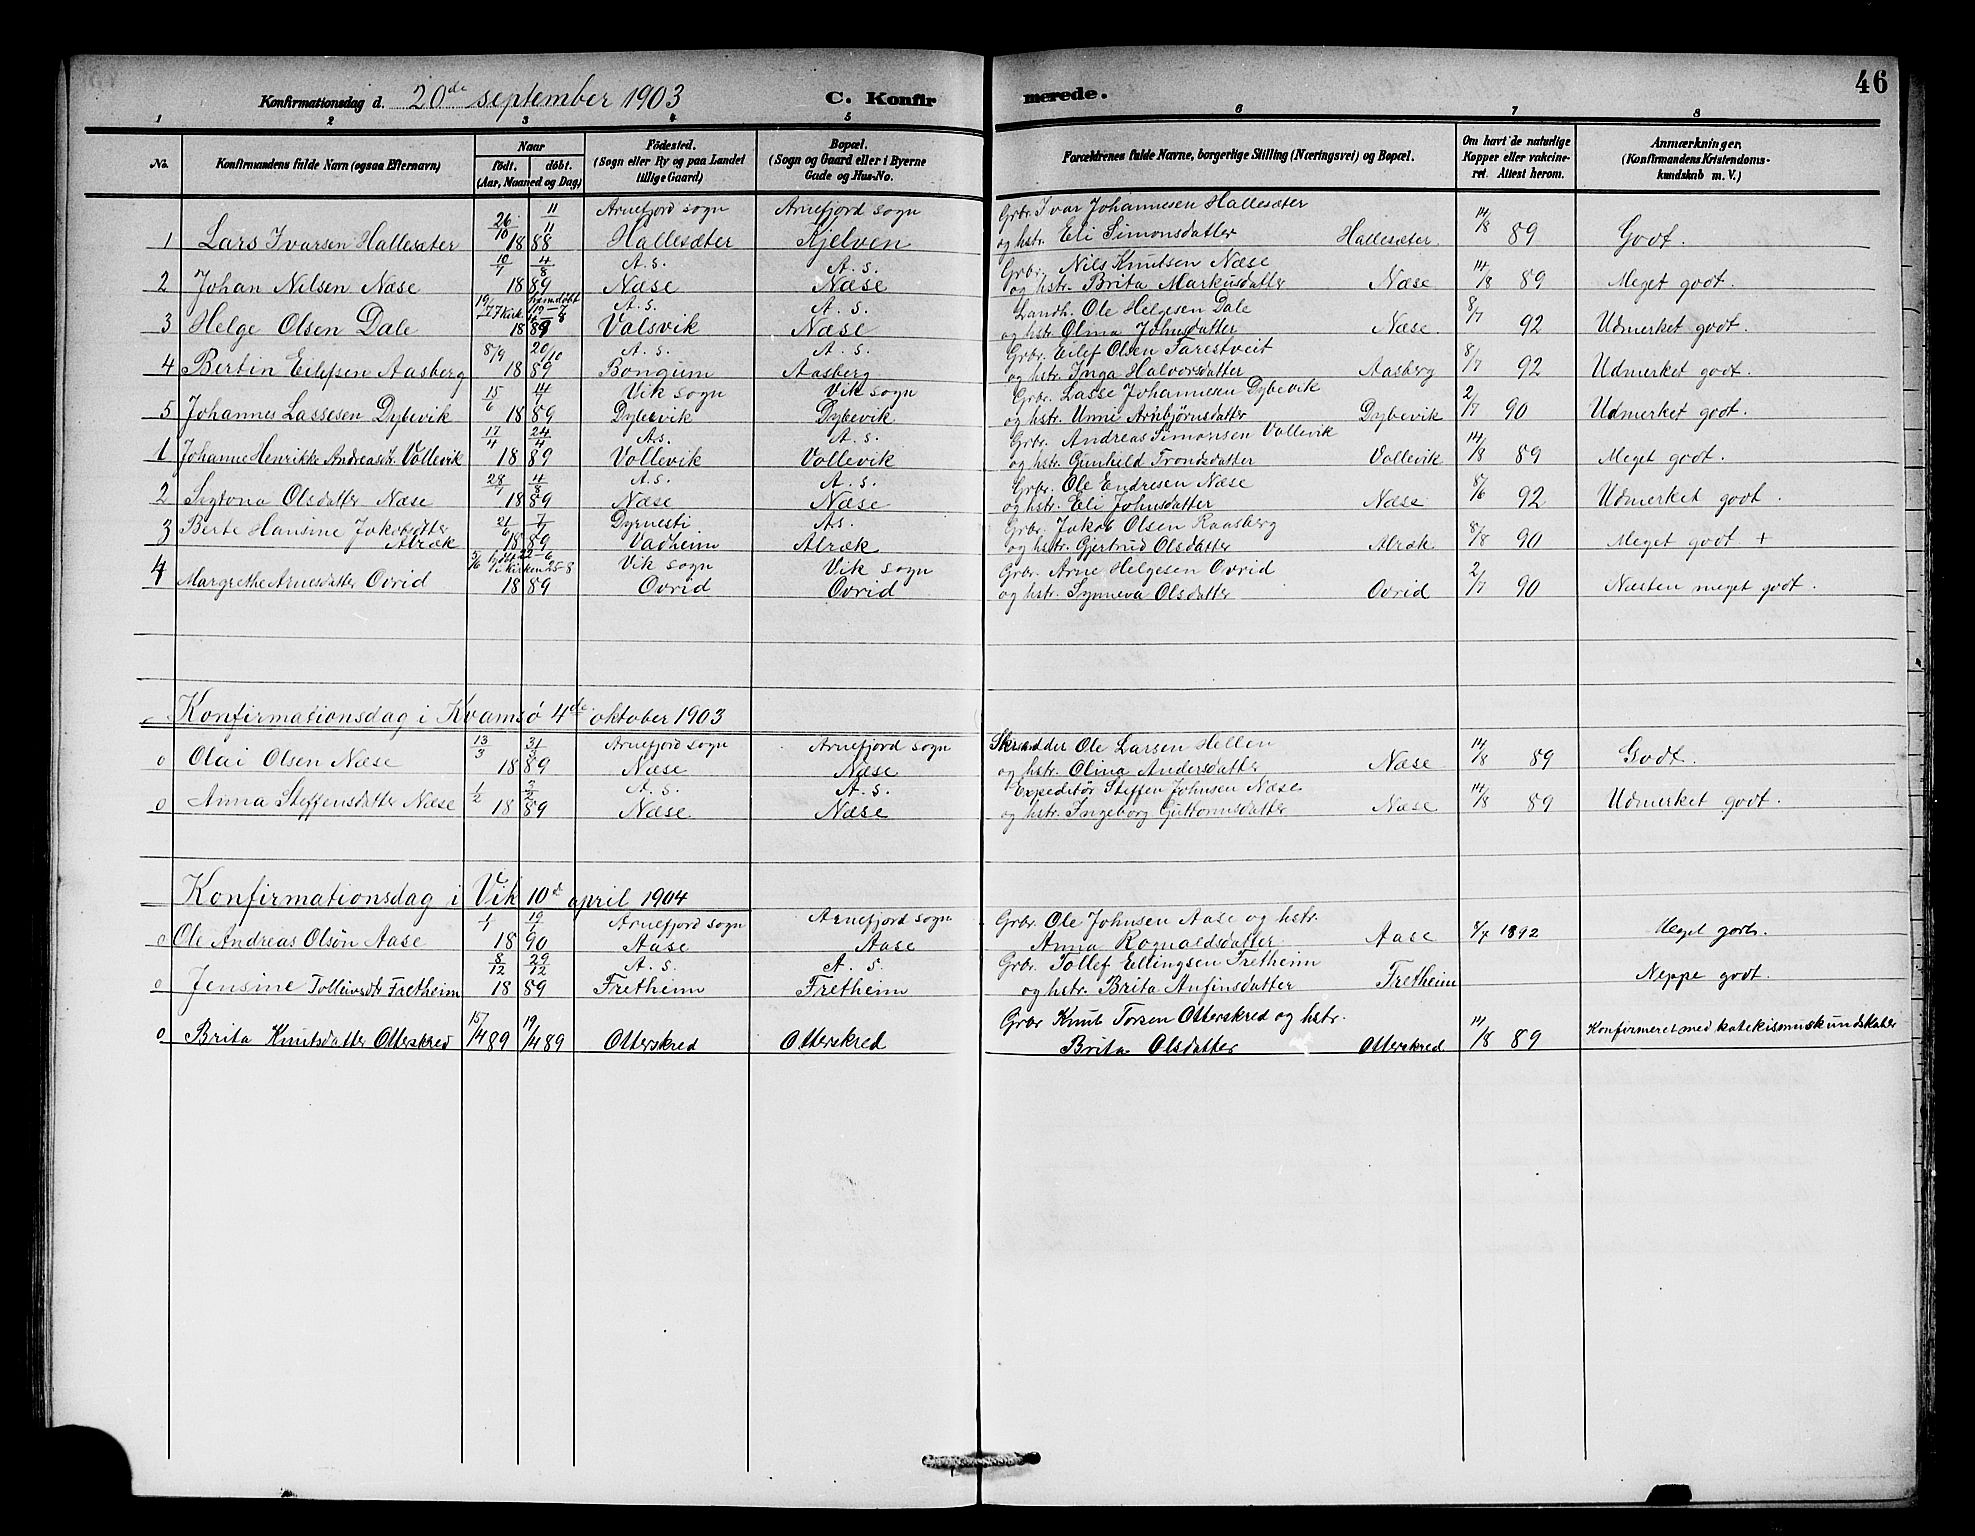 46
Konfirmationsdag d. 20de september 1903 C. Konfirmerede.
1 2 3 4 5 6 7 8
No. Konfirmandens fulde Navn (ogsaa Efternavn) Naar født. døbt. (Aar, Maaned og Dag) Fødested. (Sogn eller By og paa Landet tillige Gaard) Bopæl. (Sogn og Gaard eller i Byerne Gade og Hus-No. Forældrenes fulde Navne, borgerlige Stilling (Næringsvei) og Bopæl. Om havt de naturlige Kopper eller vakcineret. Attest herom. Anmærkninger, (Konfirmandens Kristendomskundskab m. V.)
26/10 11/11 Arnefjord sogn Arnefjord sogn Grbr. Ivar Johannesen Hallesæter
1 Lars Ivarsen Hallesæter 1888 Hallesæter Kjelven og hstr. Eli Simonsdatter Hallesæter. 14/8 89 Godt.
10/7 4/8 A. s. A. s. Grbr. Nils Knutsen Næse
2 Johan Nilsen Næse 1889 Næse Næse og hstr. Brita Markusdatter Næse 14/8 89 Meget godt.
A. s. A. s. Landh. Ole Helgesen Dale
3 Helge Olsen Dale 1889 Valsvik Næse og hstr. Olina Johnsdatter Næse. 8/7 92 Udmerket godt.
8/9 20/10 A. s. A. s. Grbr. Eilef Olsen Farestveit
4 Bertin Eilefsen Aasberg 1889 Bongum Aasberg og hstr. Inga Halvorsdatter Aasberg 8/7 92 Udmerket godt.
15/6 14/7 Vik sogn Vik sogn Grbr. Lasse Johannesen Dybevik
5 Johannes Lassesen Dybevik 1889 Dybevik Dybevik og hstr. Unni Arnbjørnsdatter Dybevik 2/7 90 Udmerket godt.
17/4 24/4 A.s. A. s. Grbr. Andreas Simonsen Vollevik
1 Johanne Henrikke Andreasdtr. Vollevik 1889 Vollevik Vollevik og hstr. Gunhild Trondsdatter Vollevik 14/8 89 Meget godt.
28/7 4/8 A.s. A. s. Grbr. Ole Endresen Næse
2 Sygtona Olsdatter Næse 1889 Næse Næse og hstr. Eli Johnsdatter Næse 8/6 92 Udmerket godt.
3 Berte Hansine Jakobsdtter 21/6 7/7 Dyrnesti A.s. Grbr. Jakob Olsen Raasberg
Alræk 1889 Vadheim Alræk og hstr. Gjertrud Olsdatter Alræk 8/8 90 Meget godt +
5/6 hdt 22-6 i kirken 25-8 Vik sogn Vik sogn Grbr. Arne Helgesen Ovrid
4 Margrethe Arnesdatter Ovrid 1889 Ovrid Ovrid og hstr. Synneva Olsdatter Ovrid 2/7 90 Næsten meget godt.
Konfirmationsdag i Kvamsö 4de oktober 1903
13/3 31/3 Arnefjord sogn Arnefjord sogn Skrædder Ole Larsen Hellen
o Olai Olsen Næse 1889 Næse Næse og hstr. Olina Andersdatter Næse 14/8 89 Godt.
1/2 2/2 A. s. A. s. Expeditör Steffen Johnsen Næse
o Anna Steffensdatter Næse 1889 Næse. Næse og hstr. Ingeborg Guttormsdatter Næse 14/8 89 Udmerket godt.
Konfirmationsdag i Vik 10d april 1904
1/1 19/1 Arnefjord sogn Arnefjord sogn Grbr. Ole Johnsen Aase og hstr.
o Ole Andreas Olsön Aase 1890 Aase Aase Anna Romaldsdatter Aase 8/7 1892 Meget godt.
8/12 29/12 A. s. A. s. Grbr. Tollef Ellingsen Fretheim
o Jensine Tolleivsdtr Fretheim 1889 Fretheim Fretheim og hstr. Brita Anfinsdatter Fretheim Neppe godt.
Grbr Knut Torsen Otterskred og hstr.
o Brita Knutsdatter Otterskred 15/4 89 19/4 89 Otterskred Otterskred Brita Olsdatter Otterskred 14/8 89 Konfirmeret med katekismuskundskaber